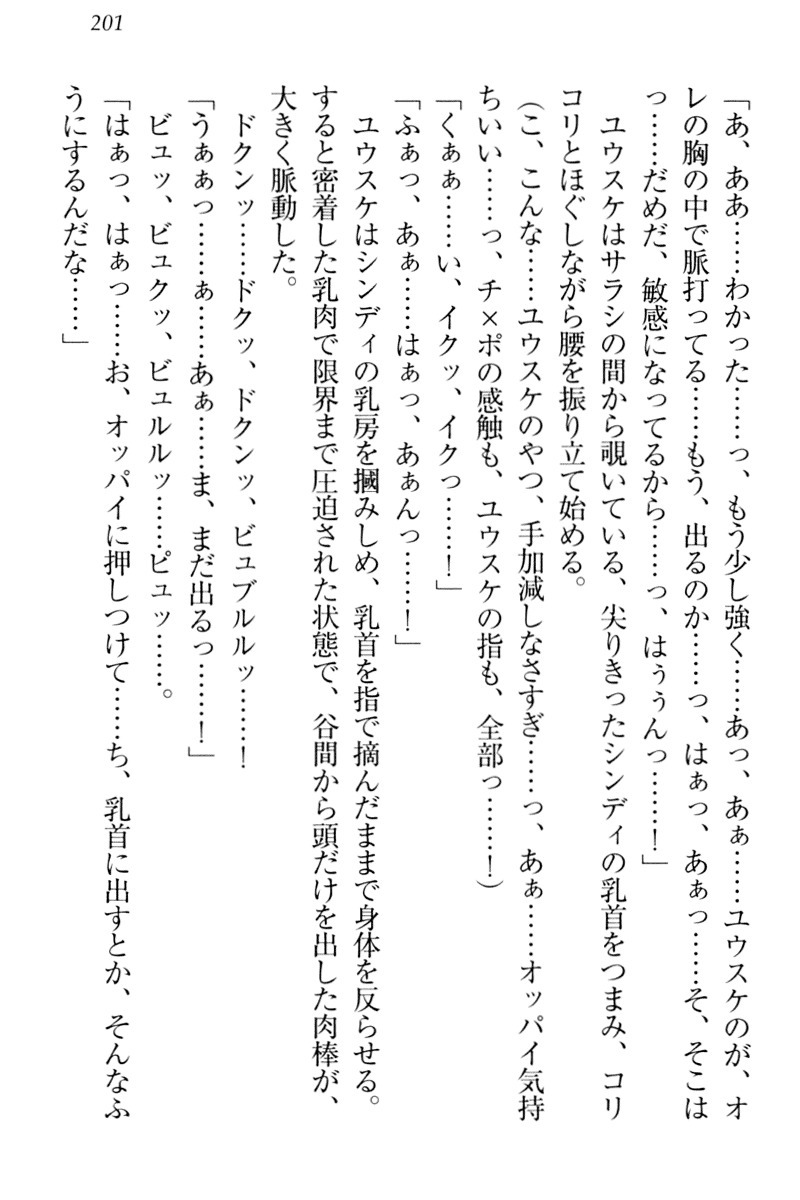 201
「あ、ああ……わかった……っ、もう少し強く……あっ、あぁ……ユウスケのが、オ
レの胸の中で脈打ってる……もう、出るのか……っ、はぁっ、あぁっ……そ、そこは
っ……だめだ、敏感になってるから……っ、はぅぅんっ……！」
ユウスケはサラシの間から覗いている、尖りきったシンディの乳首をつまみ、コリ
コリとほぐしながら腰を振り立て始める。
（こ、こんな……ユウスケのやつ、手加減しなさすぎ……っ、あぁ……オッパイ気持
ちいい……っ、チ×ポの感触も、ユウスケの指も、全部っ……！）
「くぁぁ……い、イクッ、イクっ……！」
「ふぁっ、あぁ……はぁっ、あぁんっ……！」
ユウスケはシンディの乳房を摑みしめ、乳首を指で摘んだままで身体を反らせる。
すると密着した乳肉で限界まで圧迫された状態で、谷間から頭だけを出した肉棒が、
大きく脈動した。
ドクンッ……ドクッ、ドクンッ、ビュブルルッ……！
「うぁぁっ……ぁ……あぁ……ま、まだ出るっ……！」
ビュッ、ビュクッ、ビュルルッ……ピュッ……。
「はぁっ、はぁっ……お、オッパイに押しつけて……ち、乳首に出すとか、そんなふ
うにするんだな……」